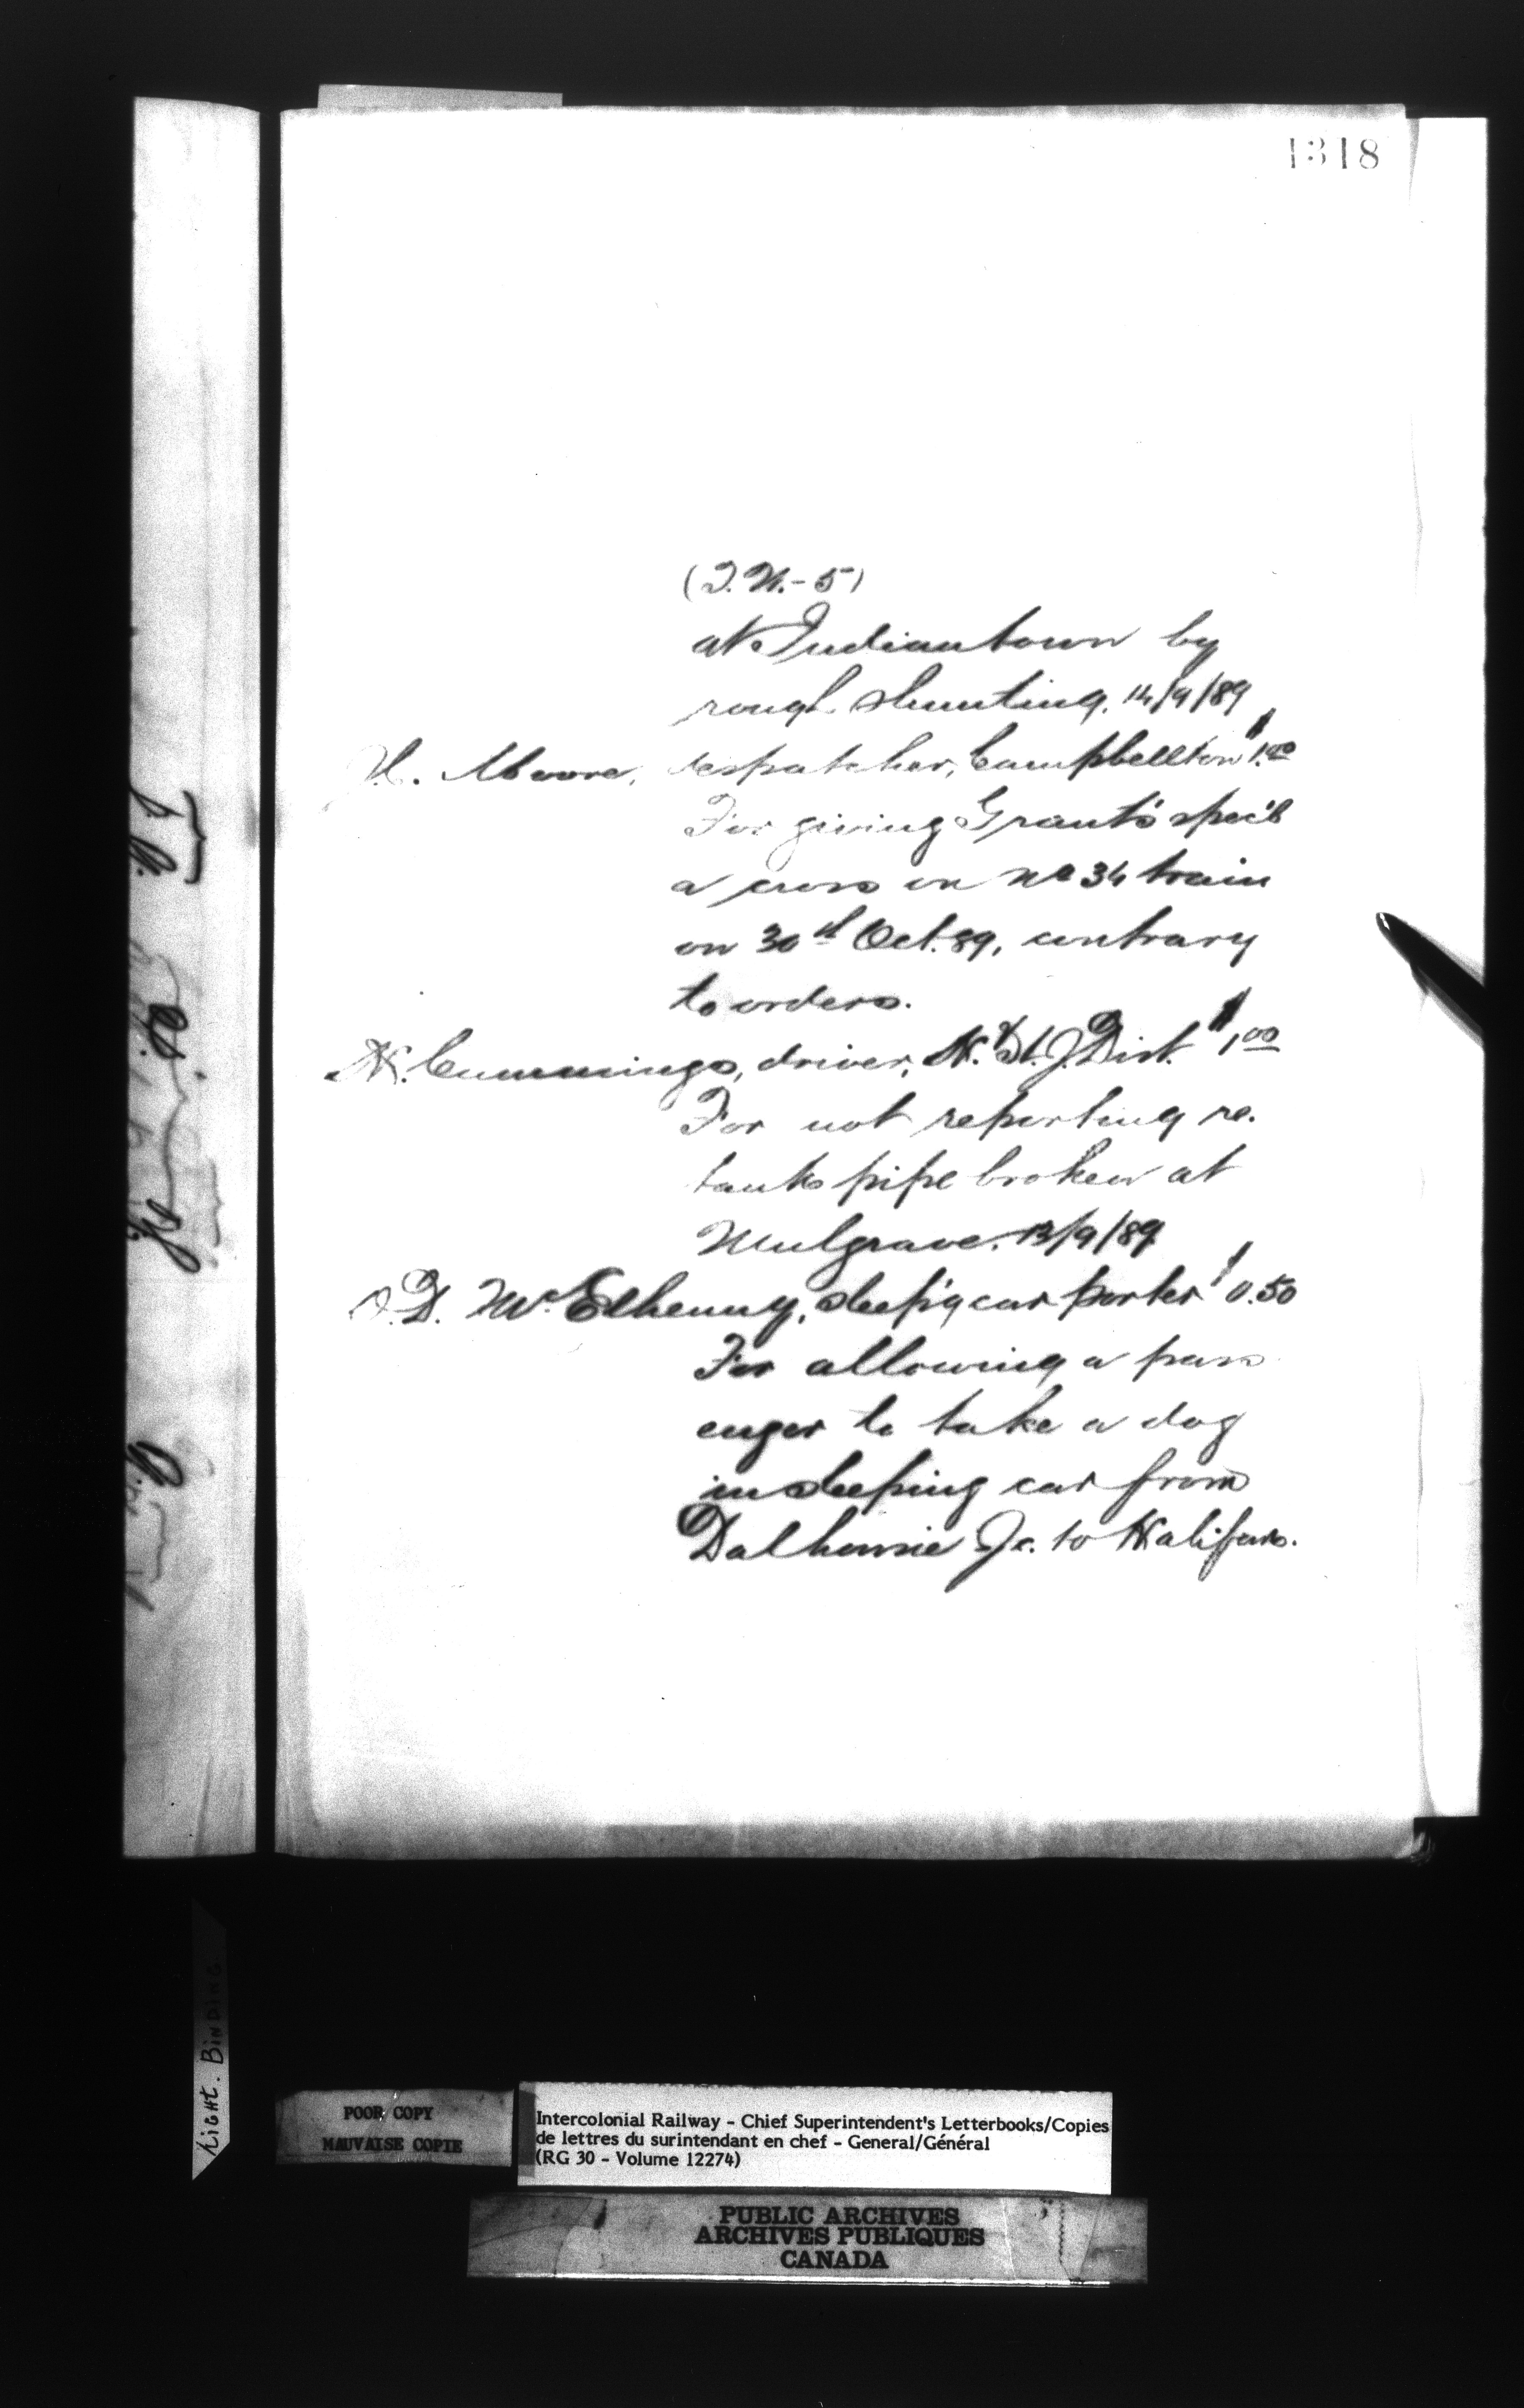 1318
(T.N.-5)
at Indiantown by
rough shunting. 14/9/89
H. Moore, despatcher, Campbellton $1.00
For giving Grant's spec'l
a cross on No 34 train
on 30th Oct. 89, contrary
to orders.
N. Cummings, driver, H. & St. J. Dist. $1.00
For not reporting re.
tank pipe broken at
Mulgrave. 13/9/89
D. McElhenny, sleep'g car porter $0.50
For allowing a pass
enger to take a dog
in sleeping car from
Dalhousie Jc. to Halifax.
TIGHT. BINDING
POOR COPY
MAUVAISE COPIE
Intercolonial Railway - Chief Superintendent's Letterbooks/Copies
de lettres du surintendant en chef - General/Général
(RG 30 - Volume 12274)
PUBLIC ARCHIVES
ARCHIVES PUBLIQUES
CANADA